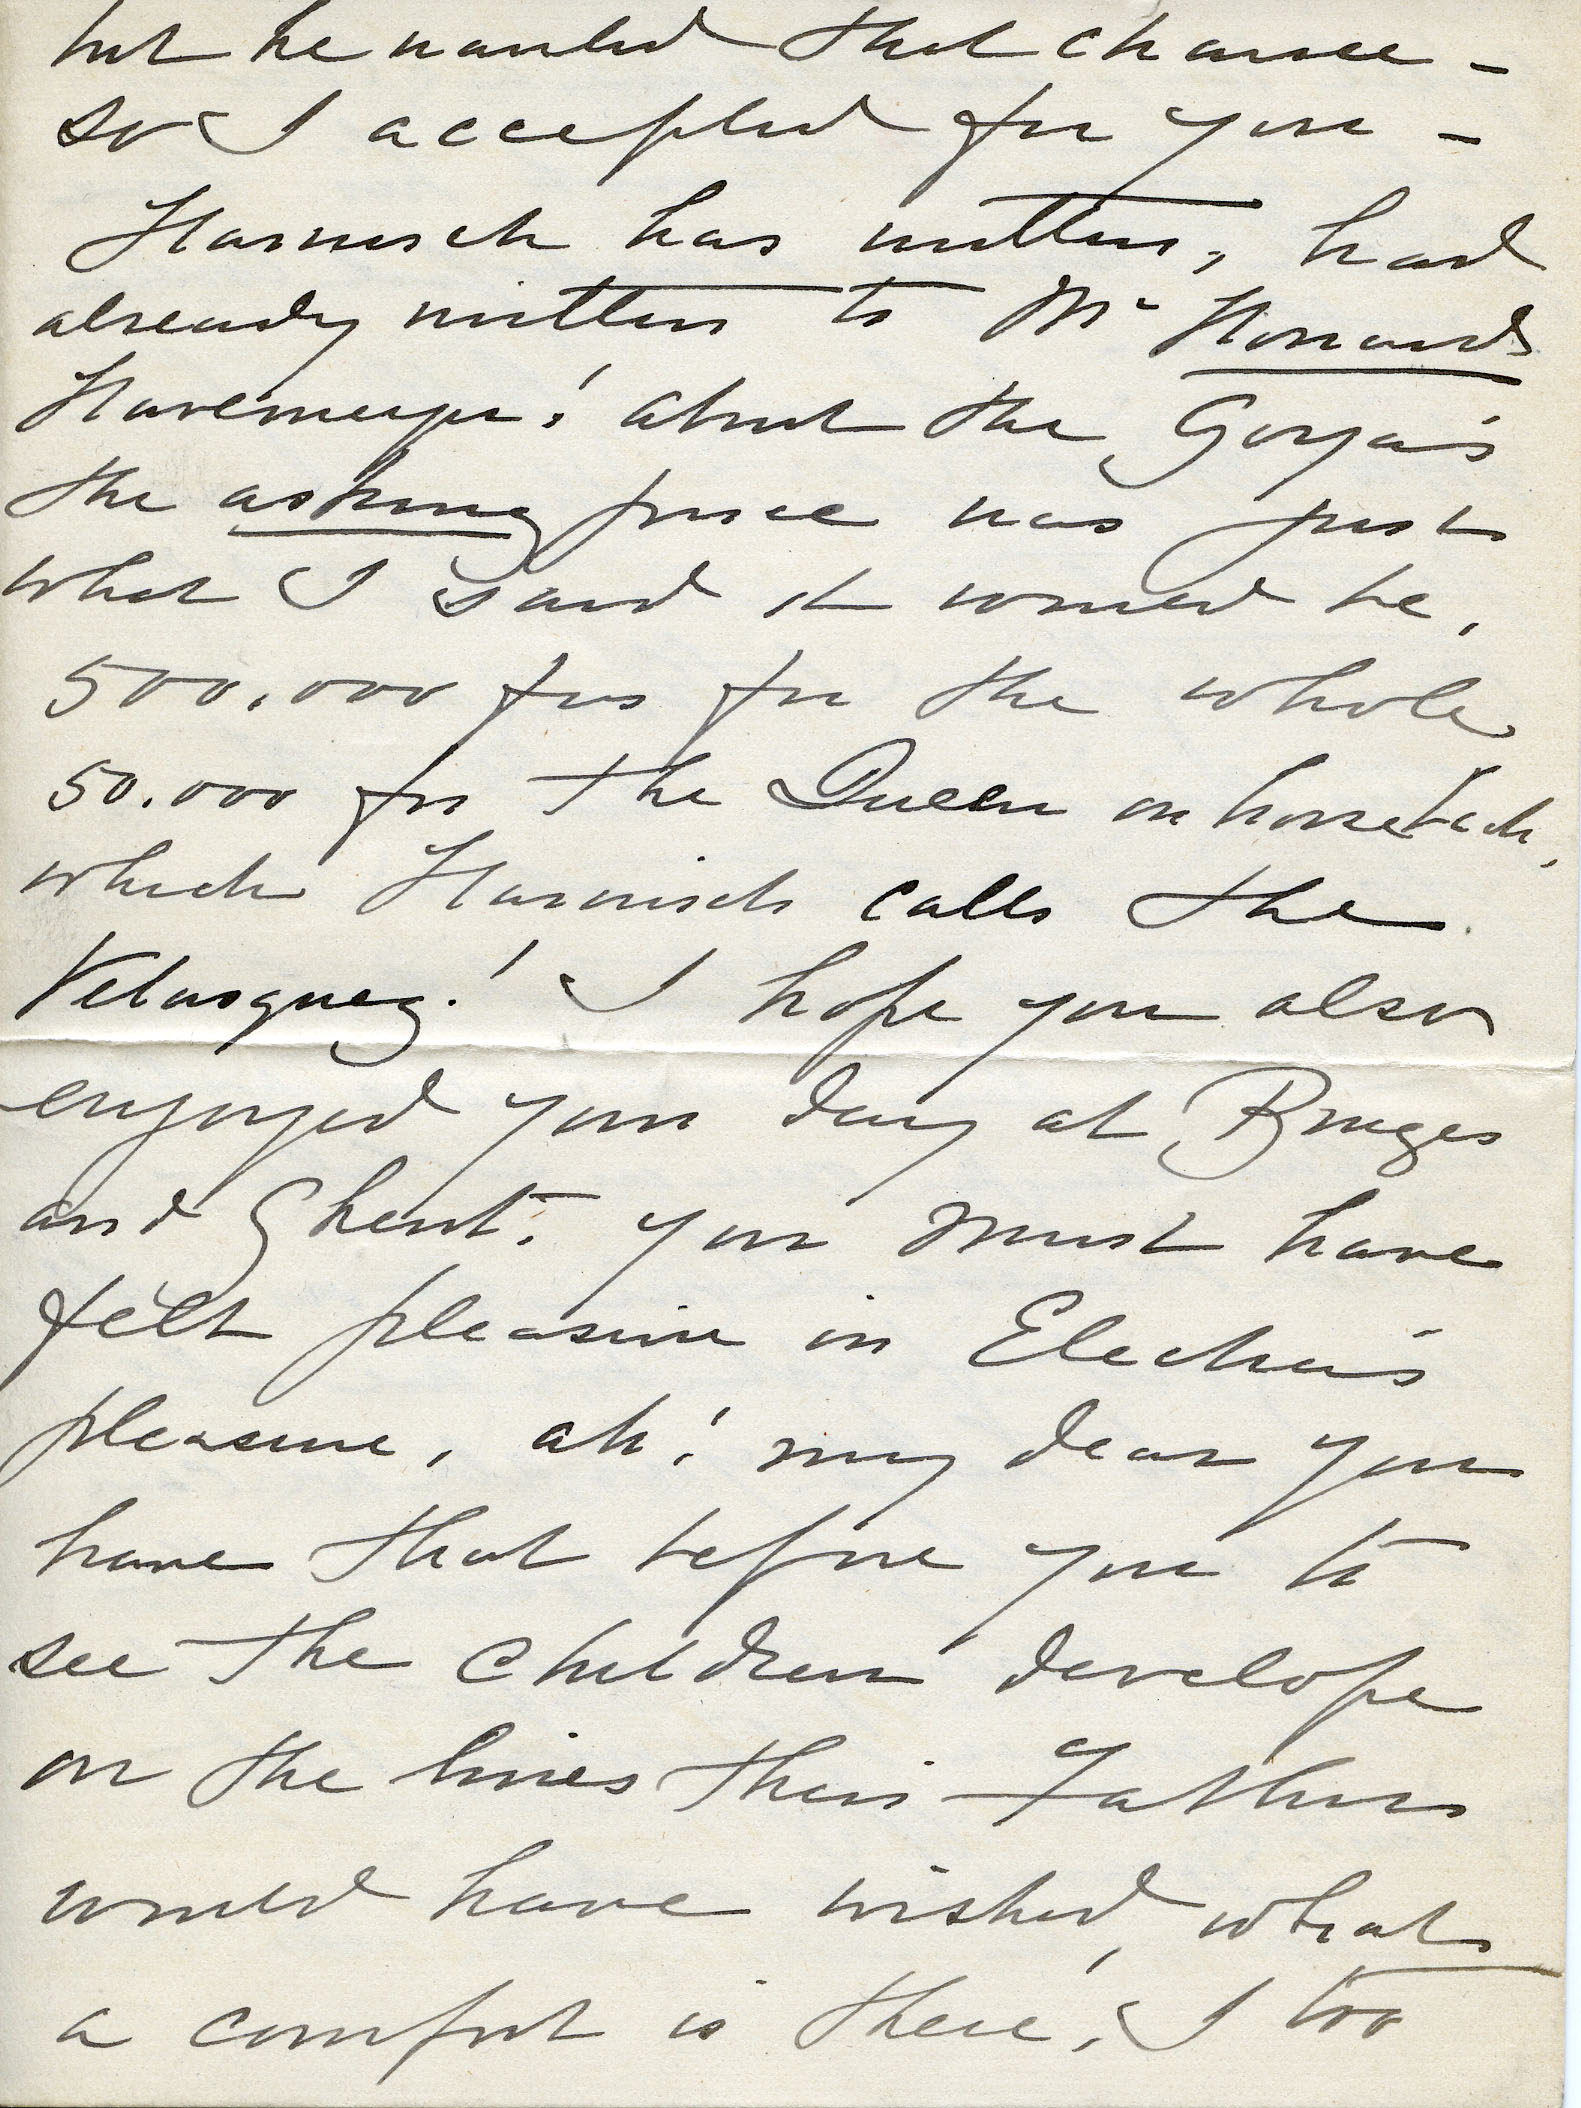 but he wanted that chance —
so I accepted for you —
Harnisch has written, had
already written to Mr Howard
Havemeyer! about the Goya's
the asking price was just
what I said it would be,
500.000 frs for the whole
50.000 for the Queen on horseback,
which Harnisch calls the
Velasquez! I hope you also
enjoyed your day at Bruges
and Ghent. you must have
felt pleasure in Electra's
pleasure, ah! my dear you
have that before you to
see the children develope
on the lines their Father
would have wished, what
a comfort is there, I too